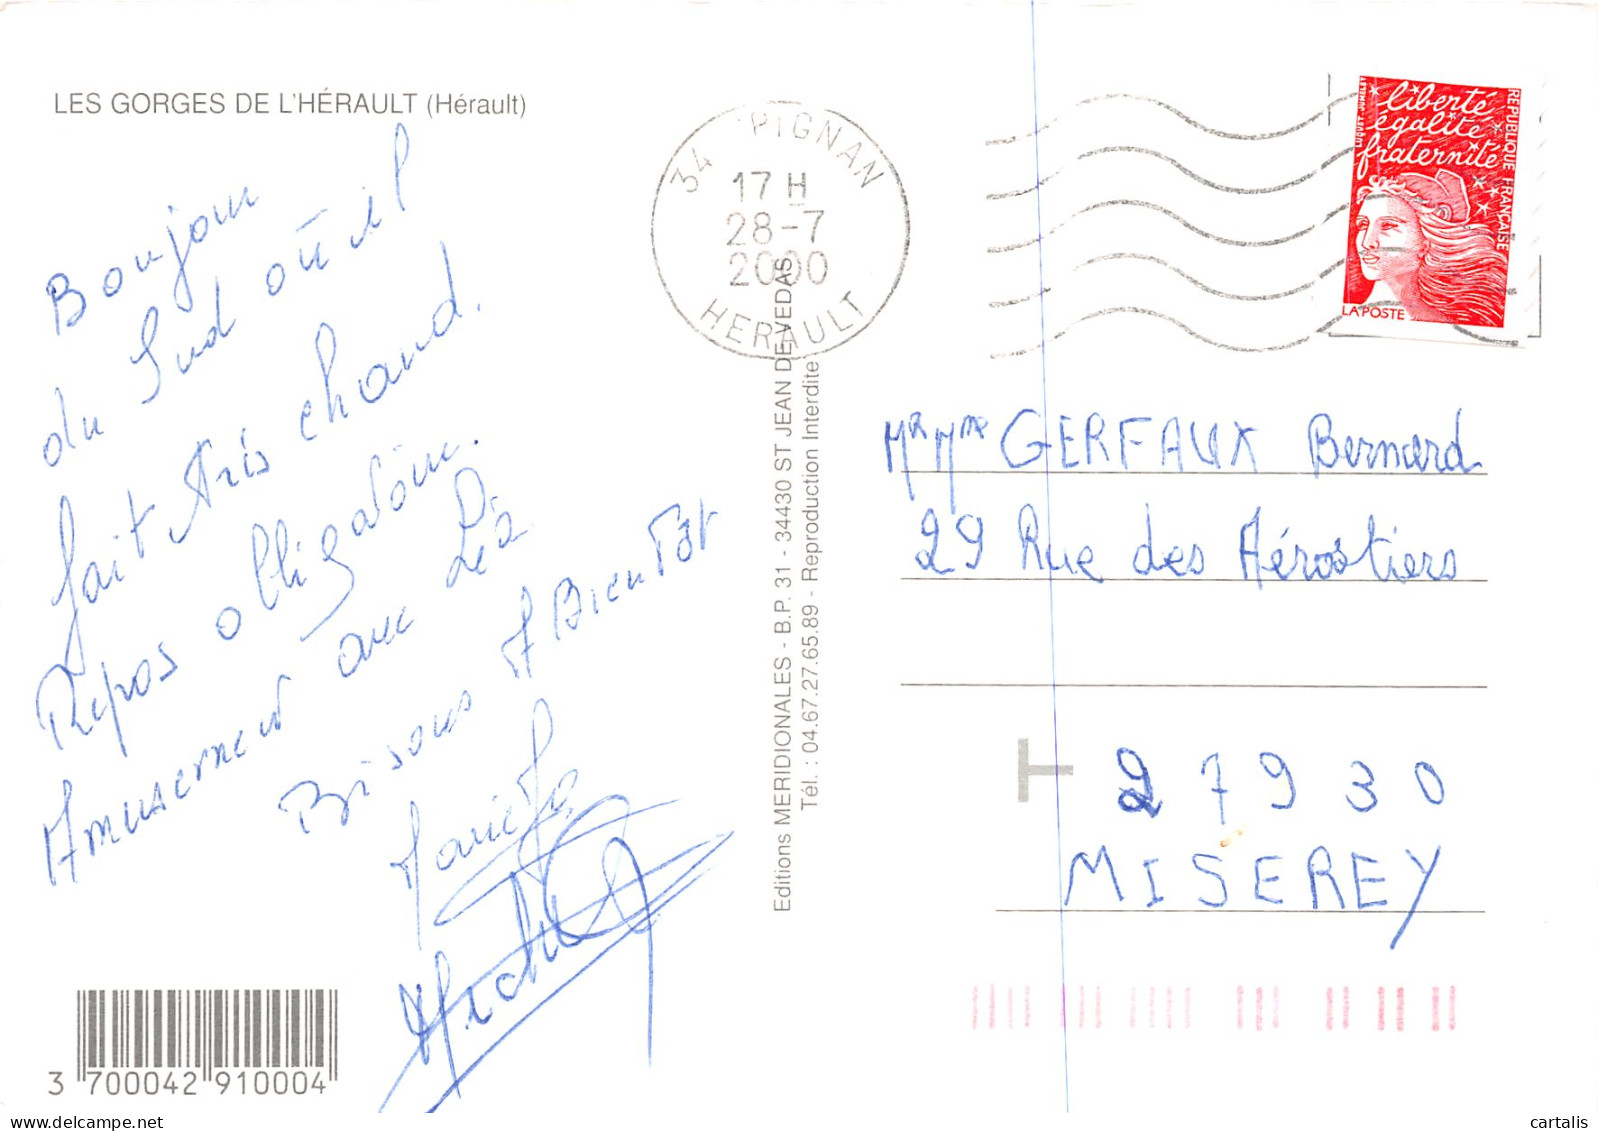 LES GORGES DE L'HÉRAULT (Hérault)
Bonjour
du Sud où il
fait très chaud.
Repos obligatoire.
Amusement avec Léa
Bisous A Bientôt
Michel
3 700042 910004
34 PIGNAN
17 H
28-7
2000
HERAULT
Editions MERIDIONALES - B.P. 31 - 34430 ST JEAN DE VEDAS
Tél. : 04.67.27.65.89 - Reproduction Interdite
liberté
égalité
fraternité
REPUBLIQUE FRANÇAISE
LA POSTE
Mr Mme GERFAUX Bernard
29 Rue des Aérostiers
27930
MISEREY
cartalis